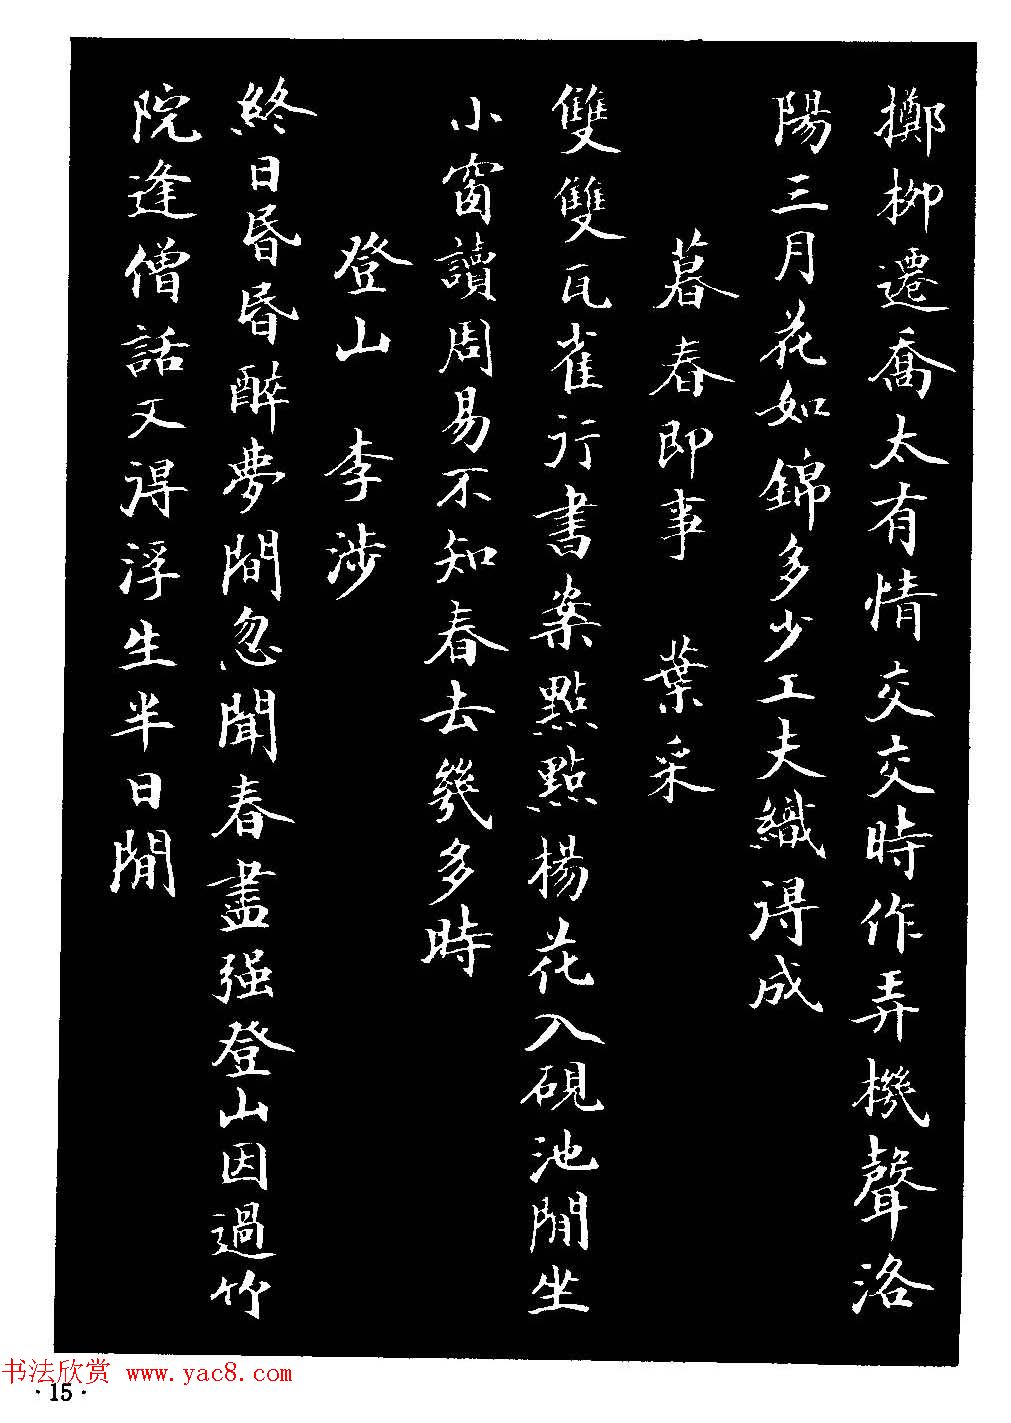 擲柳遷喬太有情交交時作弄機聲洛
陽三月花如錦多少工夫織得成
暮春即事 葉采
雙雙瓦雀行書案點點楊花入硯池閒坐
小窗讀周易不知春去幾多時
登山 李涉
終日昏昏醉夢間忽聞春盡强登山因過竹
院逢僧話又得浮生半日閒
书法欣赏 www.yac8.com
·15·